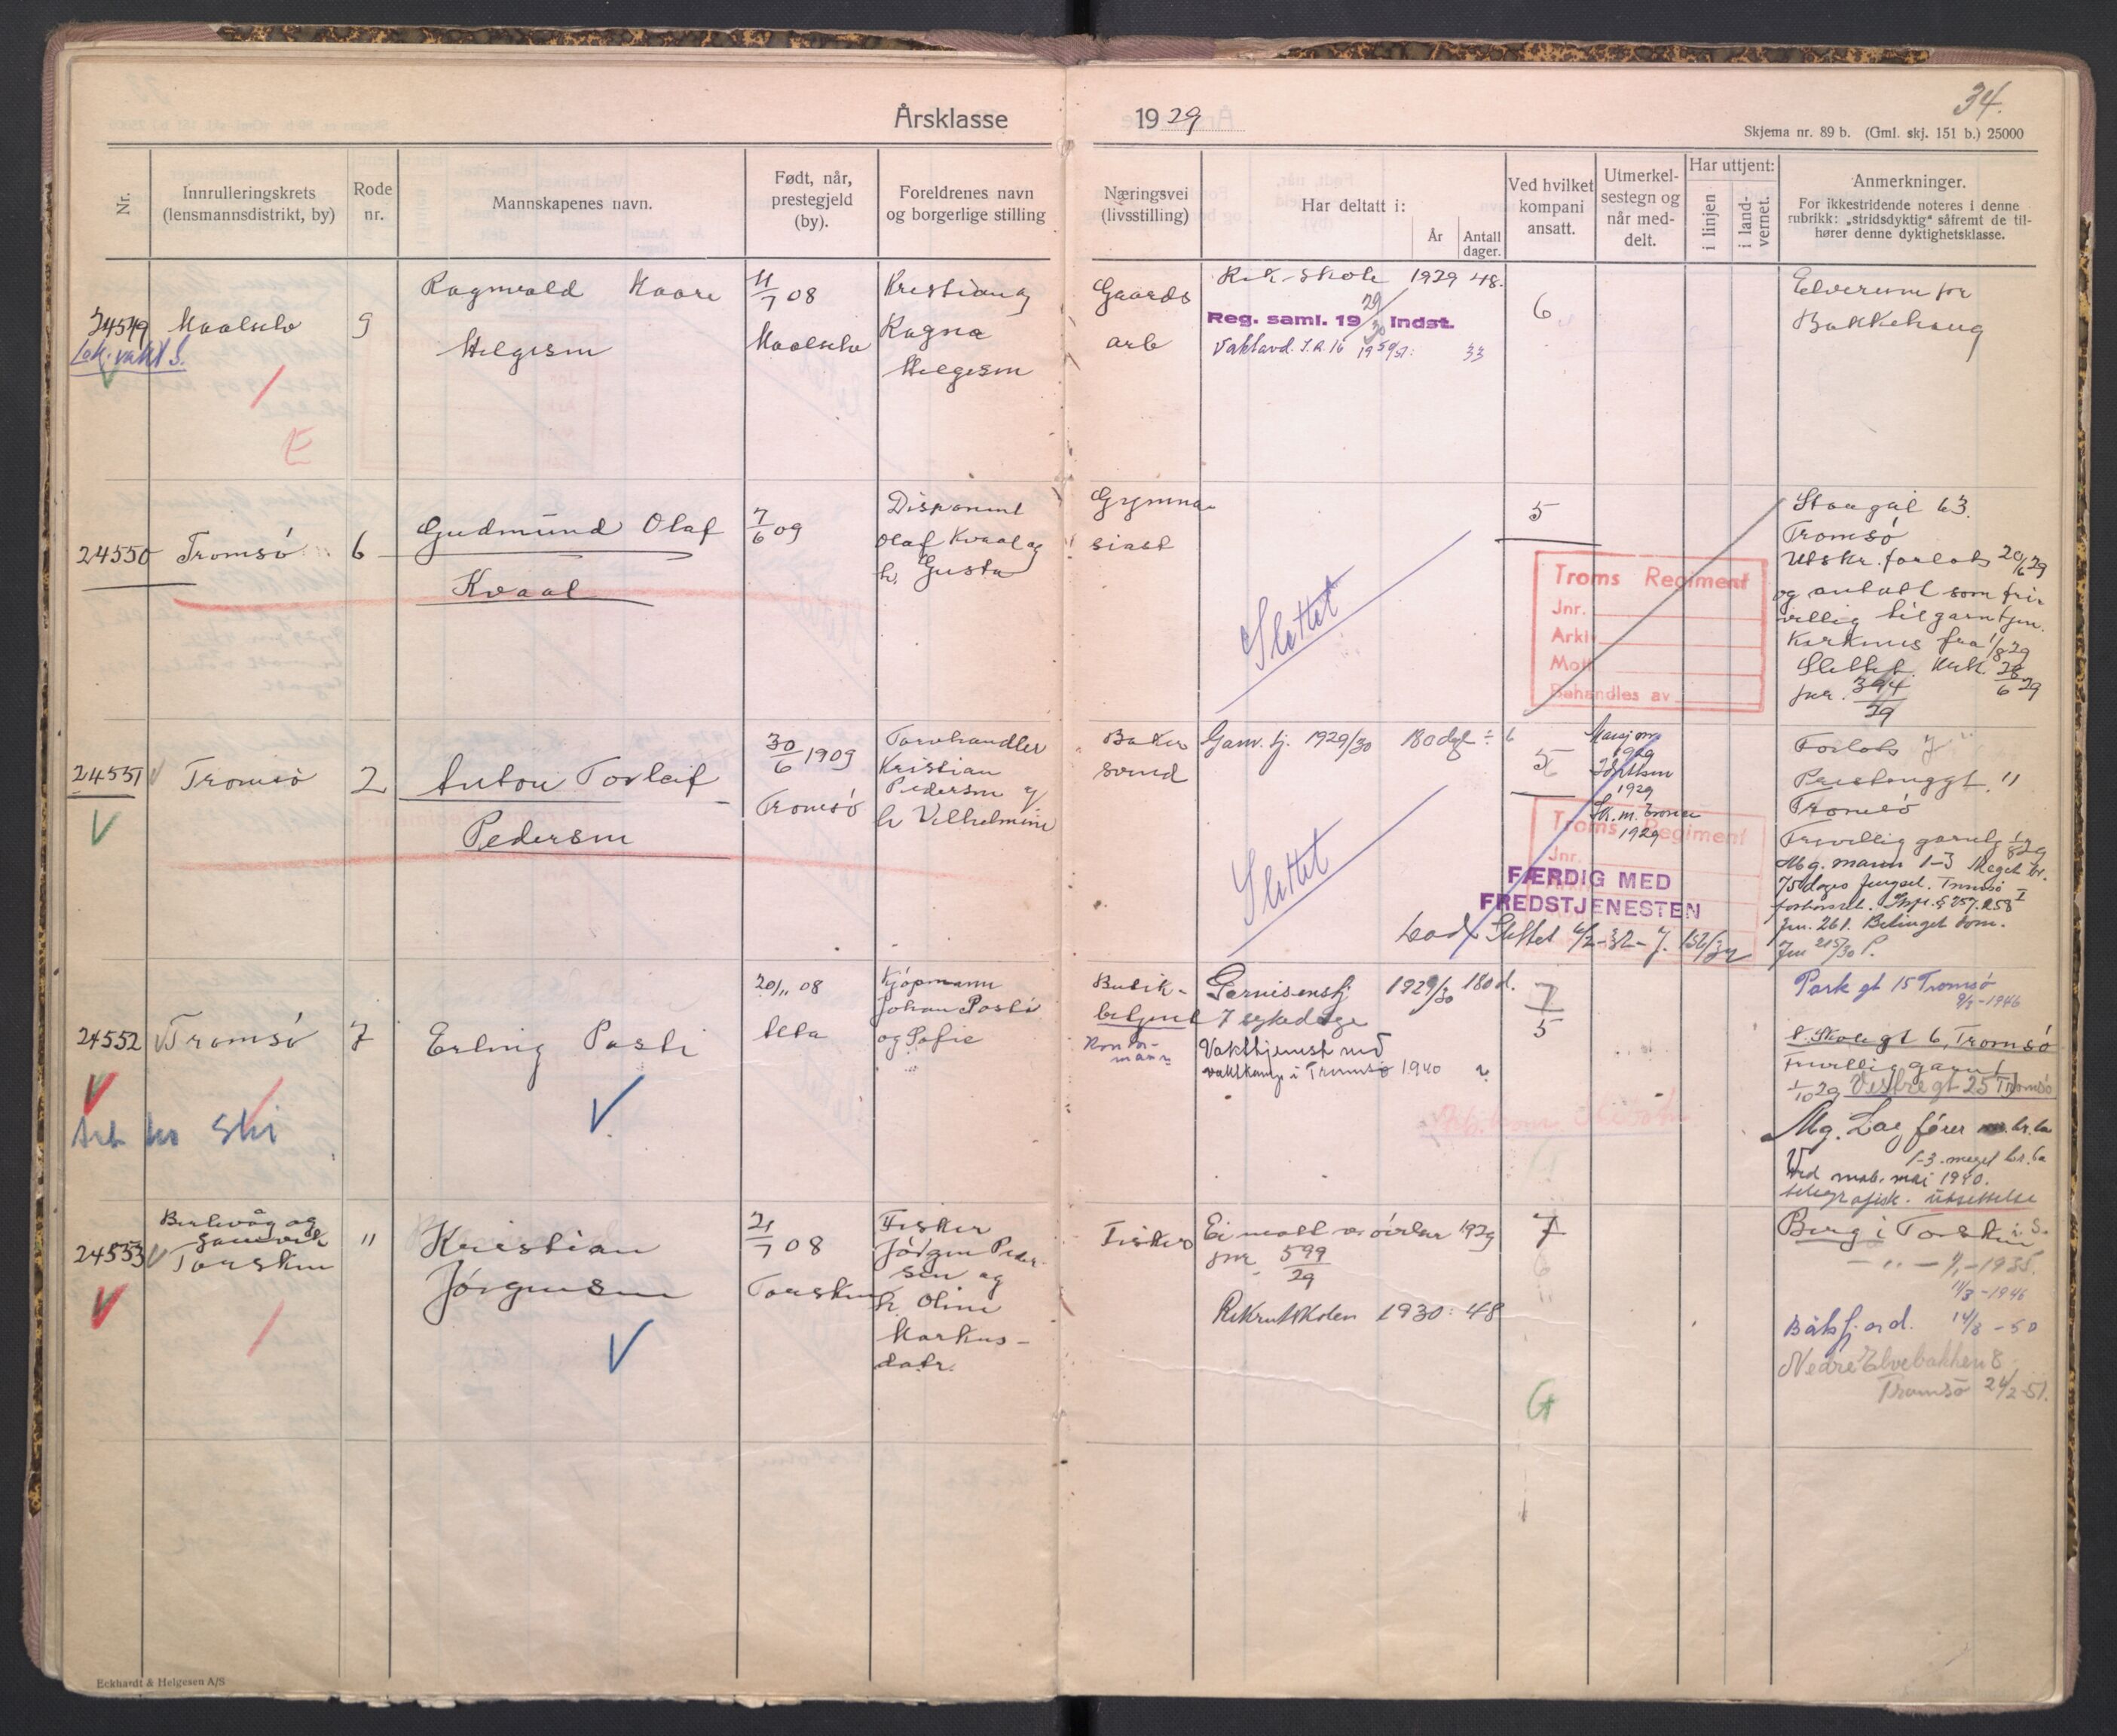 34.
Årsklasse 1929
Skjema nr. 89 b. (Gml. skj. 151 b.) 25000
Nr.
Innrulleringskrets
(lensmannsdistrikt, by)
Rode
nr.
Mannskapenes navn.
Født, når,
prestegjeld
(by).
Foreldrenes navn
og borgerlige stilling
Næringsvei
(livsstilling)
Har deltatt i:
År
Antall
dager.
Ved hvilket
kompani
ansatt.
Utmerkel-
sestegn og
når med-
delt.
Har uttjent:
i linjen
i land-
vernet.
Anmerkninger.
For ikkestridende noteres i denne
rubrikk: „stridsdyktig“ såfremt de til-
hører denne dyktighetsklasse.
24549
Lok. vakt S.
Maalselv
E
9
Ragnvald Kaare
Helgesen
11/7 08
Maalselv
Kristian og
Ragna
Helgesen
Gaards
arb
Rek-skole 1929 48.
Reg. saml. 19 29/30 Indst.
Vaktavd. I.R. 16 1950/51: 33
6
Elverum pr
Bakkehaug
24550
Tromsö
6
Gudmund Olaf
Kvaal
7/6 09
Disponent
Olaf Kvaal og
h. Gusta
Gymna-
siast
Slettet
5
Troms Regiment
Jnr.
Arkiv
Mott
Behandles av
Storgat 63.
Tromsö
Utskr. forlots 20/6 29
og antatt som fri-
villig til garn tjen.
Kirkenes fra 1/8 29
Slettet. Kirk. 28/6 29
jnr. 394/29
24551
Tromsö
2
Anton Torleif
Pedersen
30/6 1909
Tromsö
Torvhandler
Kristian
Pedersen og
h Vilhelmine
Baker
svend
Garn. tj. 1929/30 180 dgr ÷ 6
Slettet
5
1929
Idrettsm
1929
1929
Troms Regiment
Jnr.
FÆRDIG MED
FREDSTJENESTEN
Slettet
Forlots
11
Tromsö
Frivillig garntj 1/8 29
Mg. mann 1-3 Meget br.
75 dages fengsel. Tromsö
forhörsrett. Strfl. § 257. 258 I
Jnr. 261. Betinget dom.
Jnr 215/30 P.
24552
Tromsö
7
Erling Pasti
20/11 08
Kjöpmann
Johan Pasti
og Sofie
Butik-
betjent
Kontor-
mann
Garnisonstj 1929/30 180 d.
7 sykedage
Vakttjeneste ved
vaktkomp i Tromsø 1940
7
5
Park gt 15 Tromsø
9/9-1946
l. Skole gt 6, Tromsö
Frivillig garnt
1/10 29 Vestre gt 25 Tromsø
Mg. Lag förer br. ba
1-3. meget br. ba
Ved mob. mai 1940.
telegrafisk. utsettelse
ski
24553
Berlevåg og
Torsken
"
Kristian
Jörgensen
21/7 08
Torsken
Fisker
Jörgen Peder-
sen og
h. Oline
Markus-
datr.
Fisker
Ei mött v. övelser 1929
jnr 599/29
Rekruttskolen 1930: 48
7
G
Berg i Torsken i. S.
11/3-1946
Båtsfjord. 14/8-50
Nedre Elvebakken 8
Tromsö 24/2-51.
Eckhardt & Helgesen A/S